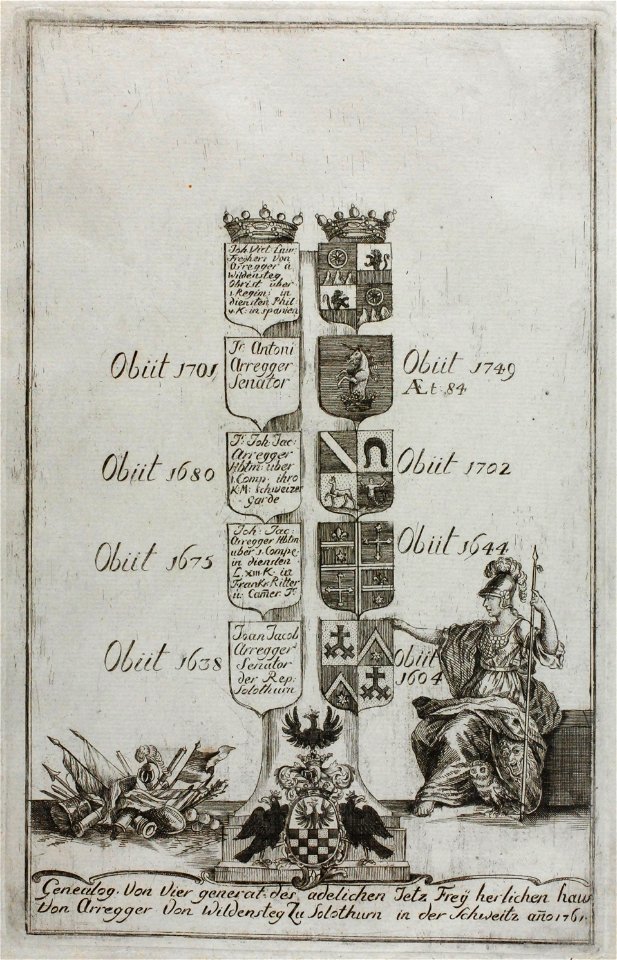 Joh Vict Laur
Freyherr Von
Arregger u
Wildensteg
Obrist über
1 Regim: in
diensten Phil
v. K: in spanien
Obiit 1701
Fr. Antoni
Arregger
Senator
Obiit 1749
Æt: 84
Obiit 1680
F: Joh: Jac:
Arregger
Hbtm: über
1 Comp: ihro
K: M: schweizer
garde
Obiit 1702
Obiit 1675
Joh: Jac:
Arregger Hbtm
über 1 Compe
in diensten
L. XIII. K: in
Frankr Ritter
u: Camer Jr
Obiit 1644
Obiit 1638
Joan Jacob
Arregger
Senator
der Rep:
Solothurn
Obiit
1604
Genealog. Von Vier generat: des adelichen Jetz Freÿ herlichen haus
Von Arregger Von Wildensteg Zu Solothurn in der Schweitz año 1761.